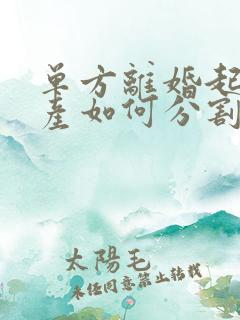 单方離婚起
産如何分割
太陽毛
未经同意禁止转载